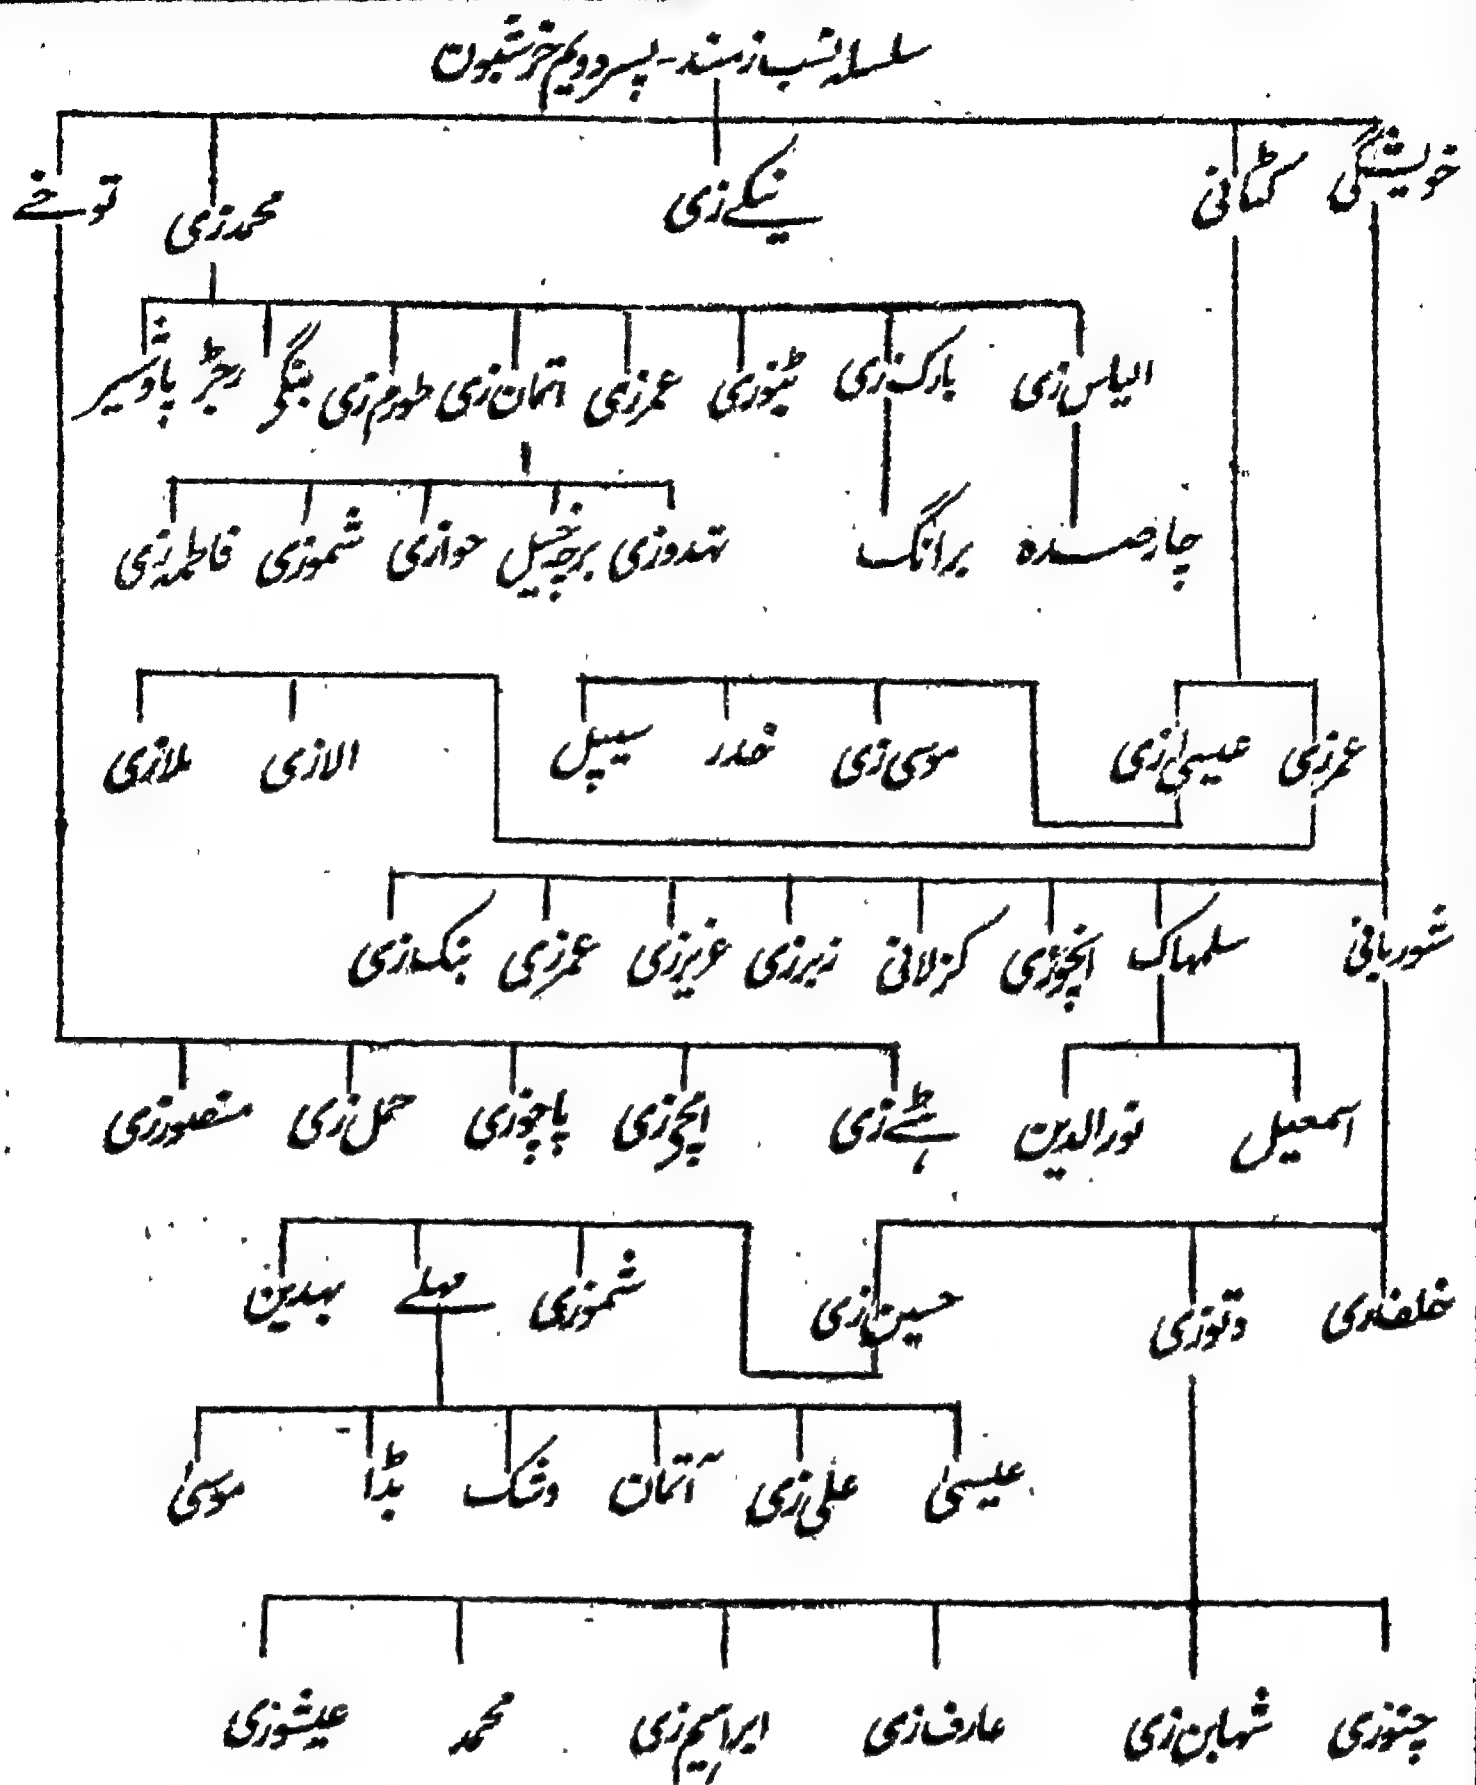 سلسلہ نسب زمند - پسر دویم خرشبون
خویشگی کٹانی نیکے زی محمد زی توخے
الیاس زی بارک زی ٹپوزی عمرزی اتمان زی طورم زی بنگر رجڑ پاؤسیر
چارصدہ برانگ تہدوزی برجہ خیل حوازی شموزی فاطمہ زی
عمرزی عیسیٰ زی موسی زی خدر سیپل الازی ملازی
شوریانی سلمہاک اچوزی کزلانی زیرزی عزیززی عمرزی بنک زی
اسمعیل نورالدین ہٹے زی اچی زی پاچوزی حمل زی منصورزی
خلف زی وتوزی حسین زی شموزی مہلے بہدین
عیسیٰ علی زی آتمان وٹک بڈا موسیٰ
چنوزی شہابن زی عارف زی ابراہیم زی محمد عیشوزی